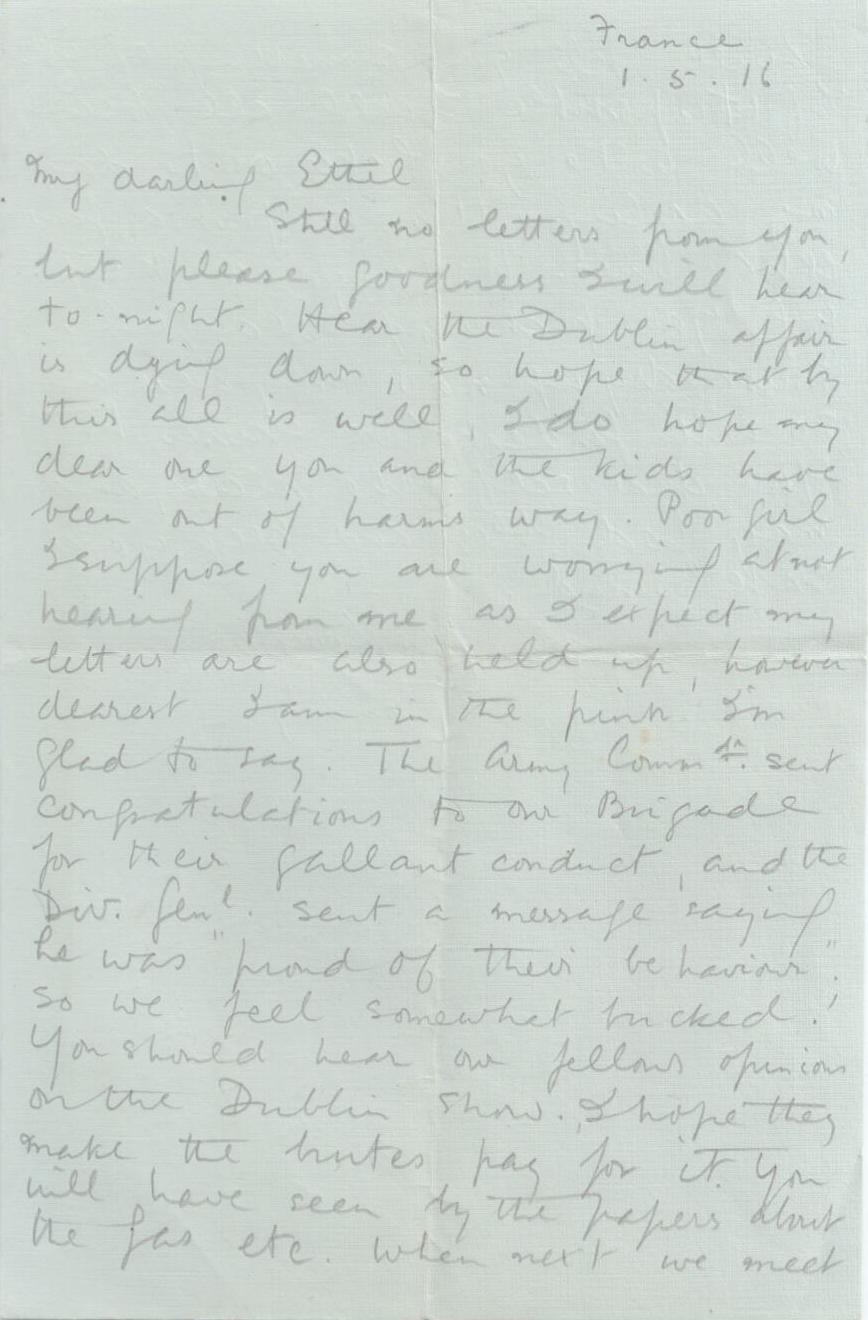 France
1. 5. 16
My darling Ethel
Still no letters from you,
but please goodness I will hear
to-night. Hear the Dublin affair
is dying down, so hope that by
this all is well, I do hope my
dear one you and the kids have
been out of harm's way. Poor girl
I suppose you are worrying at not
hearing from me as I expect my
letters are also held up, however
dearest I am in the pink I'm
glad to say. The Army Commdr. sent
congratulations to our Brigade
for their gallant conduct, and the
Div. Genl. sent a message saying
he was "proud of their behaviour".
so we feel somewhat bucked!
You should hear our fellows opinions
on the Dublin show. I hope they
make the brutes pay for it. You
will have seen by the papers about
the gas etc. When next we meet